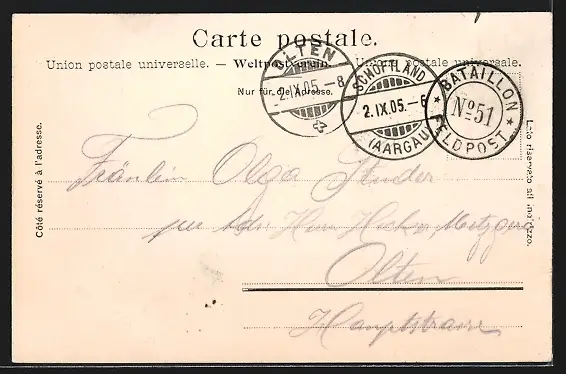 Carte postale.
Union postale universelle. — Weltpostverein. Unione postale universale.
Nur für die Adresse.
Côté réservé à l'adresse.
Lato riservato all'indirizzo.
OLTEN
2.IX.05.–8
SCHÖFTLAND
2.IX.05.–6
(AARGAU)
BATAILLON
No 51
FELDPOST
Fräulein Olga Studer
per Adr. Herr Metzgerei
Olten
Hauptstrasse